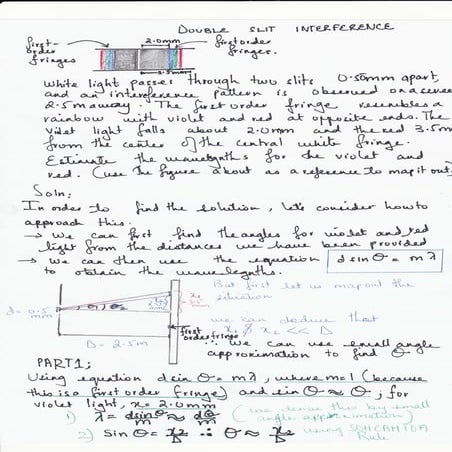 DOUBLE SLIT INTERFERENCE
first-order fringes
2.0mm
3.5mm
first order fringes.
White light passes through two slits 0.50mm apart,
and an interference pattern is observed on a screen
2.5m away. The first order fringe resembles a
rainbow with violet and red at opposite ends. The
violet light falls about 2.0mm and the red 3.5mm
from the center of the central white fringe.
Estimate the wavelengths for the violet and
red. (use the figure about as a reference to map it out)
Soln:
In order to find the solution, let's consider how to
approach this:
→ We can first find the angles for violet and red
light from the distances we have been provided
→ We can then use the equation d sin θ = mλ
to obtain the wavelengths.
But first let us map out the
situation
d = 0.5 mm
D = 2.5m
first order fringe
we can deduce that
x₁ & x₂ << D
∴ we can use small angle
approximation to find θ
PART1;
Using equation d sin θ = mλ, where m=1 (because
this is a first order fringe) and sin θ ≈ θ, for
violet light, x = 2.0mm
1) λ = d sin θ / m ≈ dθ / m (we derive this by small angle approximation)
2) Sin θ = x₂/D ∴ θ ≈ x₂/D using SOHCAHTOA Rule